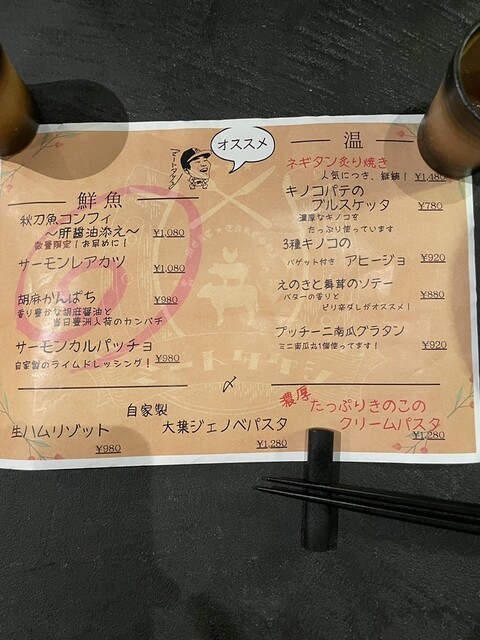 オススメ
鮮魚
秋刀魚コンフィ
～肝醤油添え～ ¥1,080
数量限定！お早めに！
サーモンレアカツ ¥1,080
胡麻かんぱち ¥980
香り豊かな胡麻醤油と
当日豊洲入荷のカンパチ
サーモンカルパッチョ ¥980
自家製のライムドレッシング！
温
ネギタン炙り焼き
人気につき、継続！ ¥1,480
キノコパテの
ブルスケッタ ¥780
濃厚なキノコを
たっぷり使っています
3種キノコの
バゲット付き アヒージョ ¥920
えのきと舞茸のソテー
バターの香りと ¥880
ピリ辛ダレがオススメ！
プッチーニ南瓜グラタン
ミニ南瓜丸1個使ってます！ ¥920
〆
生ハムリゾット
¥980
自家製
大葉ジェノベパスタ
¥1,280
濃厚
たっぷりきのこの
クリームパスタ
¥1,280